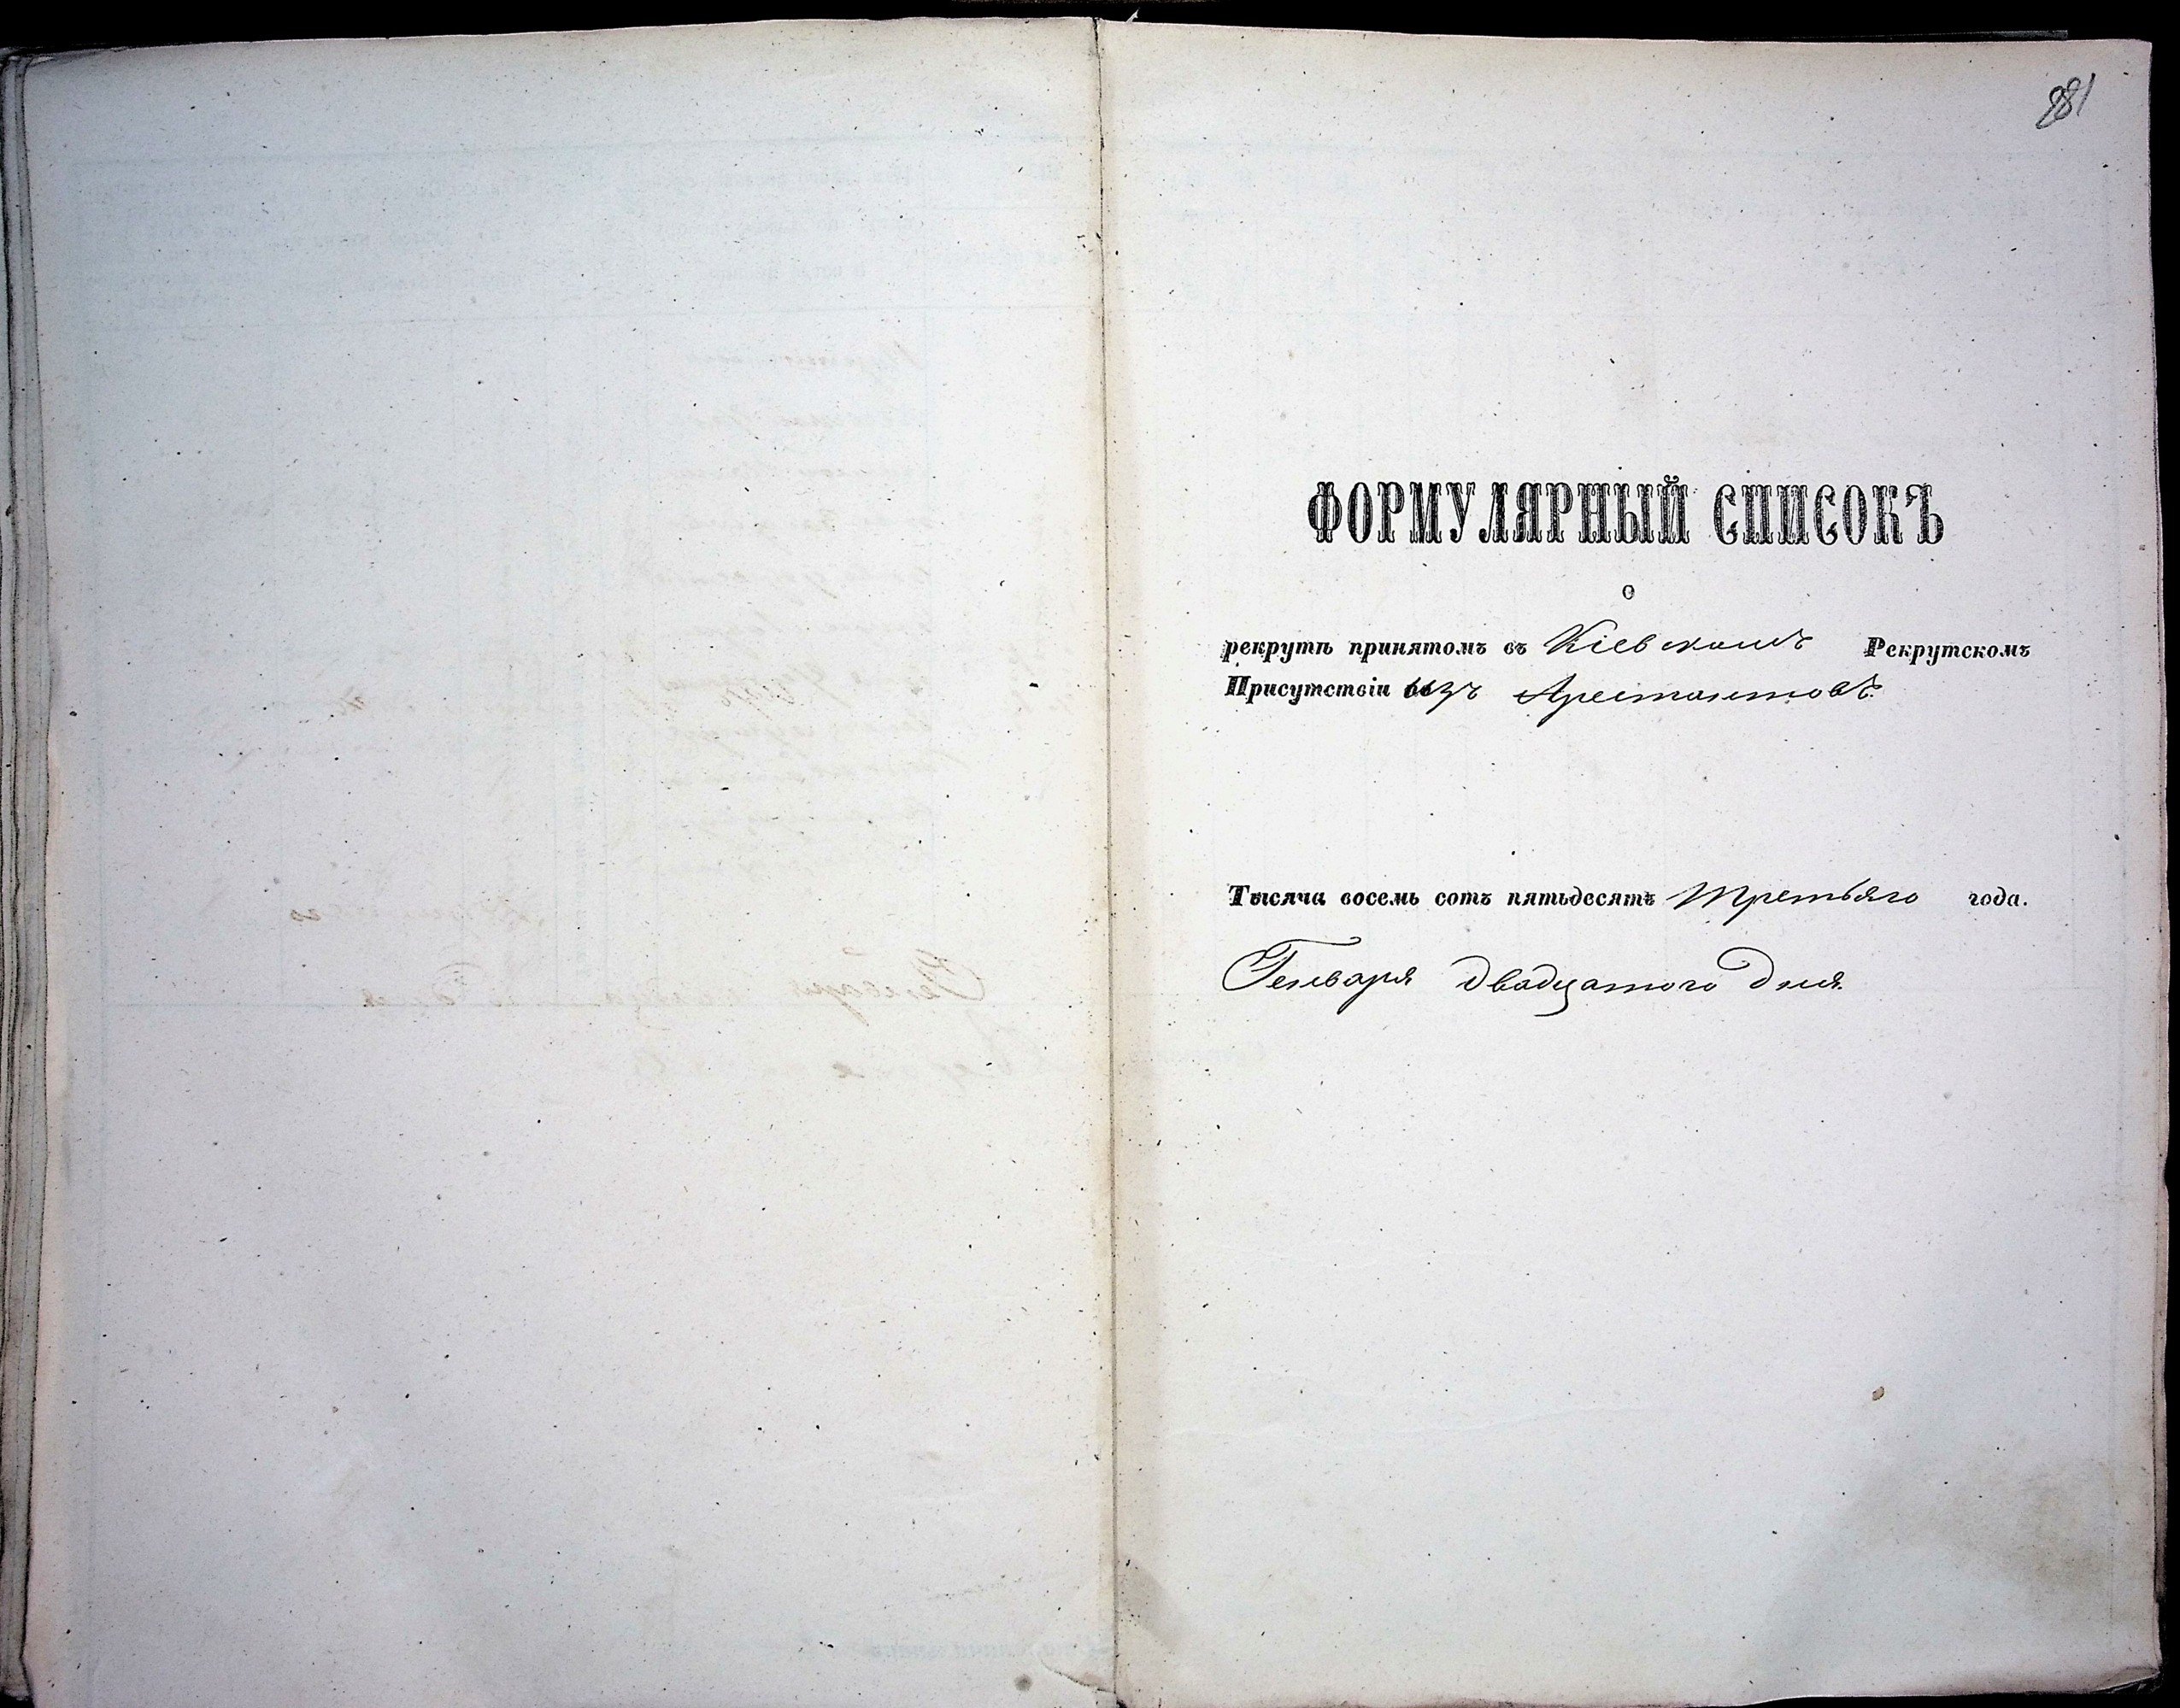 281
ФОРМУЛЯРНЫЙ СПИСОКЪ
о
рекрутѣ принятомъ въ Кіевскомъ Рекрутскомъ
Присутствіи изъ Арестантовъ
Тысяча восемь сотъ пятьдесятъ третьяго года.
Генваря двадцатого дня